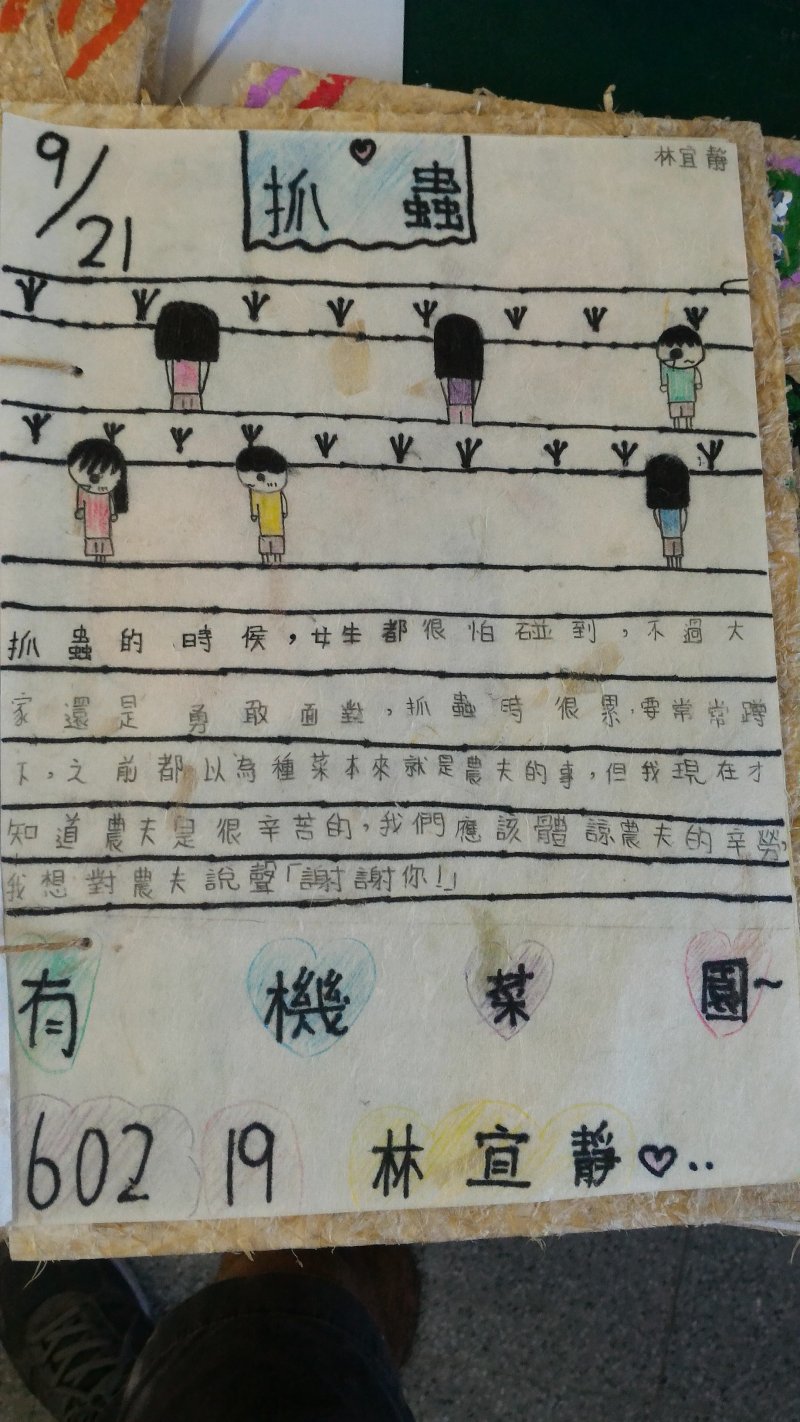 9/21
抓蟲
林宜靜
抓蟲的時侯，女生都很怕碰到，不過大
家還是勇敢面對，抓蟲時很累，要常常蹲
下，之前都以為種菜本來就是農夫的事，但我現在才
知道農夫是很辛苦的，我們應該體諒農夫的辛勞，
我想對農夫說聲「謝謝你！」
有機菜園~
602 19 林宜靜♡..